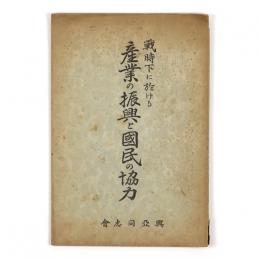 戰時下に於ける
産業の振興と國民の協力
會志同亞興